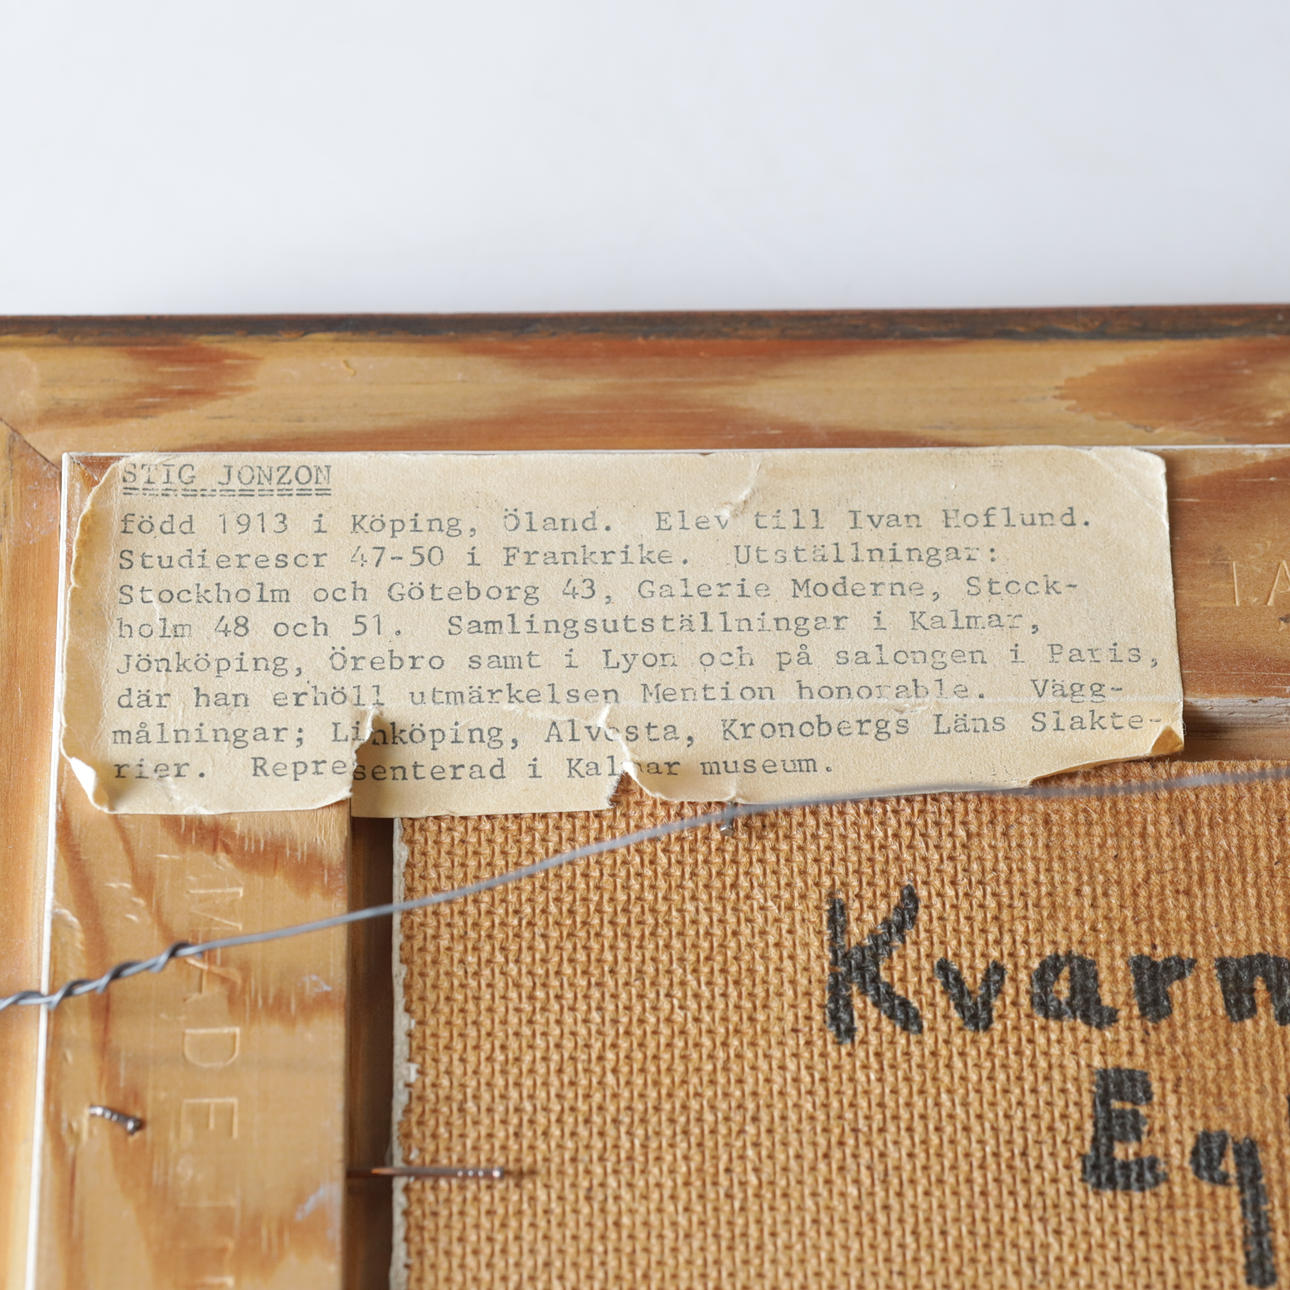 STIG JONZON
född 1913 i Köping, Öland. Elev till Ivan Hoflund.
Studieresor 47-50 i Frankrike. Utställningar:
Stockholm och Göteborg 43, Galerie Moderne, Stock-
holm 48 och 51. Samlingsutställningar i Kalmar,
Jönköping, Örebro samt i Lyon och på salongen i Paris,
där han erhöll utmärkelsen Mention honorable. Vägg-
målningar; Linköping, Alvesta, Kronobergs Läns Slakte-
rier. Representerad i Kalmar museum.
Kvarn
Eq
MADE IN